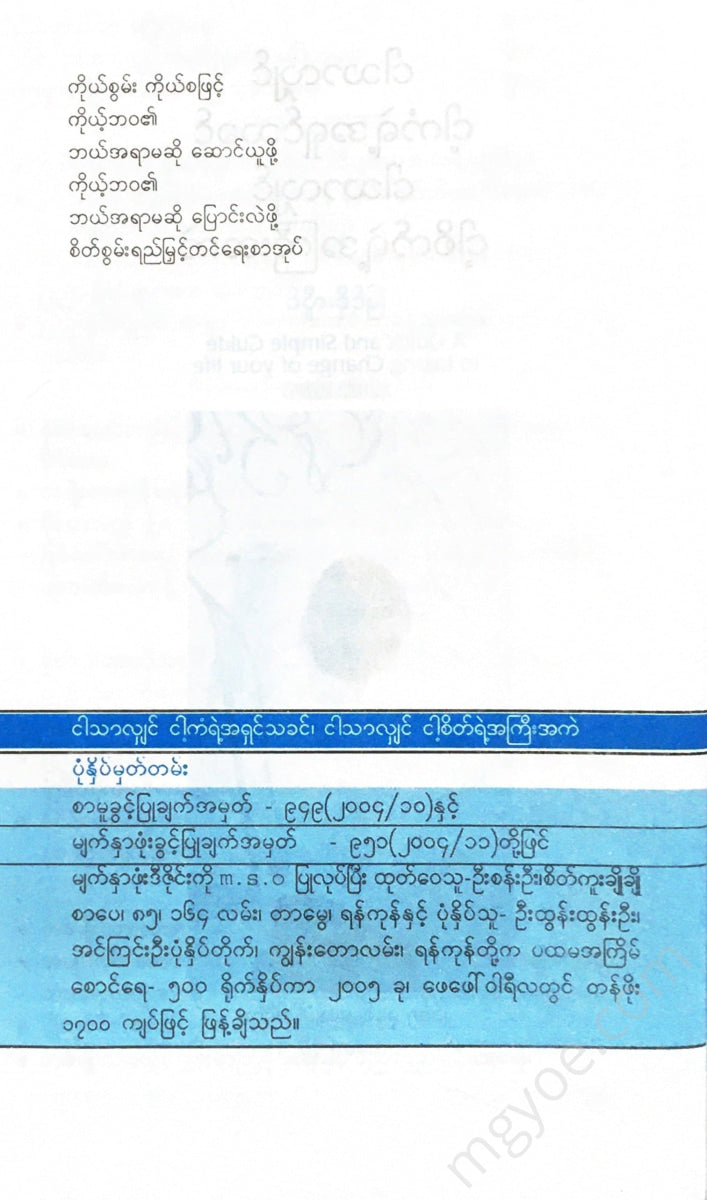 ကိုယ်စွမ်း ကိုယ်စဖြင့်
ကိုယ့်ဘဝ၏
ဘယ်အရာမဆို ဆောင်ယူဖို့
ကိုယ့်ဘဝ၏
ဘယ်အရာမဆို ပြောင်းလဲဖို့
စိတ်စွမ်းရည်မြှင့်တင်ရေးစာအုပ်
A Quick and Simple Guide
to taking Change of your life
ငါသာလျှင် ငါ့ကံရဲ့အရှင်သခင်၊ ငါသာလျှင် ငါ့စိတ်ရဲ့အကြီးအကဲ
ပုံနှိပ်မှတ်တမ်း
စာမူခွင့်ပြုချက်အမှတ် - ၉၄၉(၂၀၀၄/၁၀)နှင့်
မျက်နှာဖုံးခွင့်ပြုချက်အမှတ် - ၉၅၁(၂၀၀၄/၁၁)တို့ဖြင့်
မျက်နှာဖုံးဒီဇိုင်းကို m.s.o ပြုလုပ်ပြီး ထုတ်ဝေသူ-ဦးစန်းဦး၊စိတ်ကူးချိုချို
စာပေ၊ ၈၅၊ ၁၆၄ လမ်း၊ တာမွေ၊ ရန်ကုန်နှင့် ပုံနှိပ်သူ- ဦးထွန်းထွန်းဦး၊
အင်ကြင်းဦးပုံနှိပ်တိုက်၊ ကျွန်းတောလမ်း၊ ရန်ကုန်တို့က ပထမအကြိမ်
စောင်ရေ- ၅၀၀ ရိုက်နှိပ်ကာ ၂၀၀၅ ခု၊ ဖေဖော်ဝါရီလတွင် တန်ဖိုး
၁၇၀၀ ကျပ်ဖြင့် ဖြန့်ချိသည်။
mgyoe.com